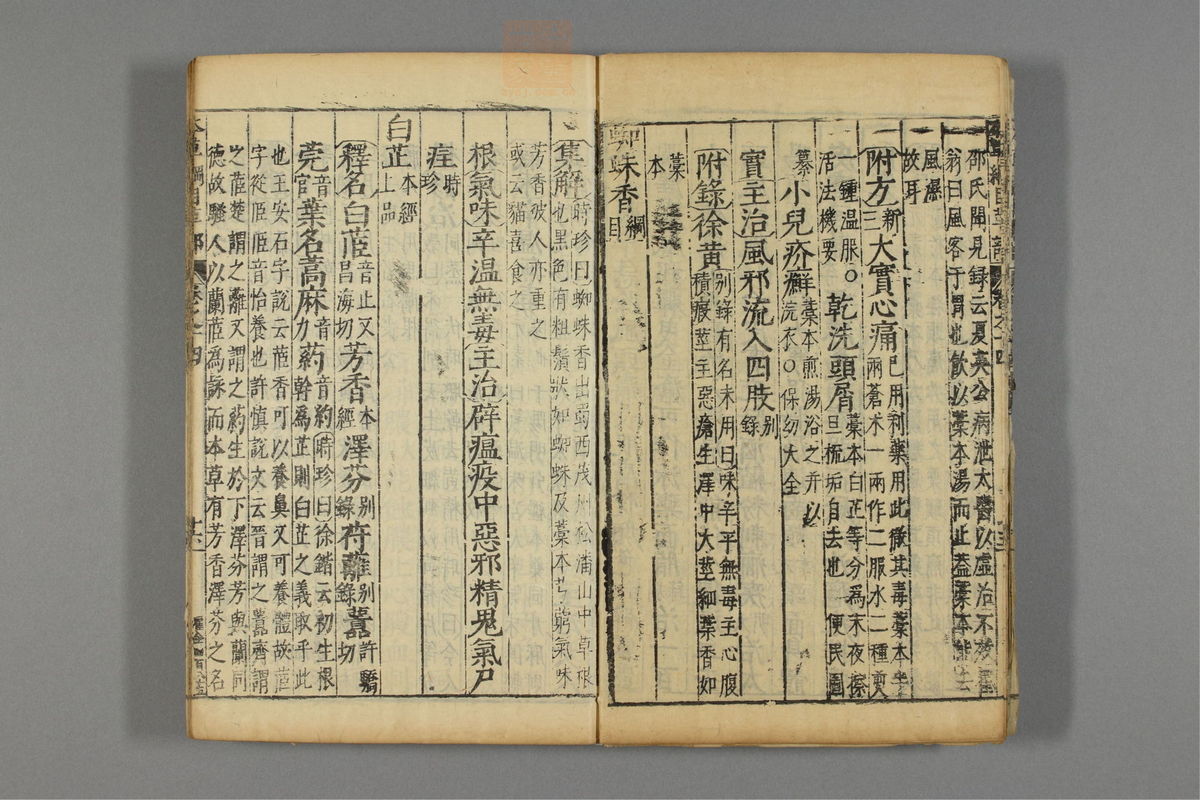 邵氏聞見録云夏英公病泄太醫以虛治不效霍
翁曰風客于胃也飲以藁本湯而止蓋藁本能去
風濕
故耳
附方新三大實心痛已用利藥用此徹其毒藁本半
兩蒼木一兩作二服水二種煎
一鍾温服○活法機要乾洗頭屑藁本白芷等分爲末夜擦
旦梳垢自去也 便民圖
纂小兒疥癬藁本煎湯浴之并以
浣衣○保幼大全
實主治風邪流入四肢別錄
附錄徐黄別錄有名未用曰味辛平無毒主心腹
積瘕莖主惡瘡生澤中大莖細葉香如
藁
本
蜘蛛香綱目
集解時珍曰蜘蛛香出蜀西茂州松潘山中草根
也黑色有粗鬚狀如蜘蛛及藁本芎藭氣味
芳香彼人亦重之
或云貓喜食之
根氣味辛温無毒主治辟瘟疫中惡邪精鬼氣尸
疰時
珍
白芷本經
上品
釋名白茝音止又
昌海切芳香本
經澤芬别
錄苻蘺别
錄䖀許驕
切
莞音
官葉名蒿麻音
力葯音約時珍曰徐鍇云初生根
幹爲芷則白芷之義取乎此
也王安石字說云茝香可以養鼻又可養體故茝
字從𦣝𦣝音怡養也許慎說文云晉謂之䖀齊謂
之茝楚謂之蘺又謂之葯生於下澤芬芳與蘭同
德故騷人以蘭茝爲詠而本草有芳香澤芬之名